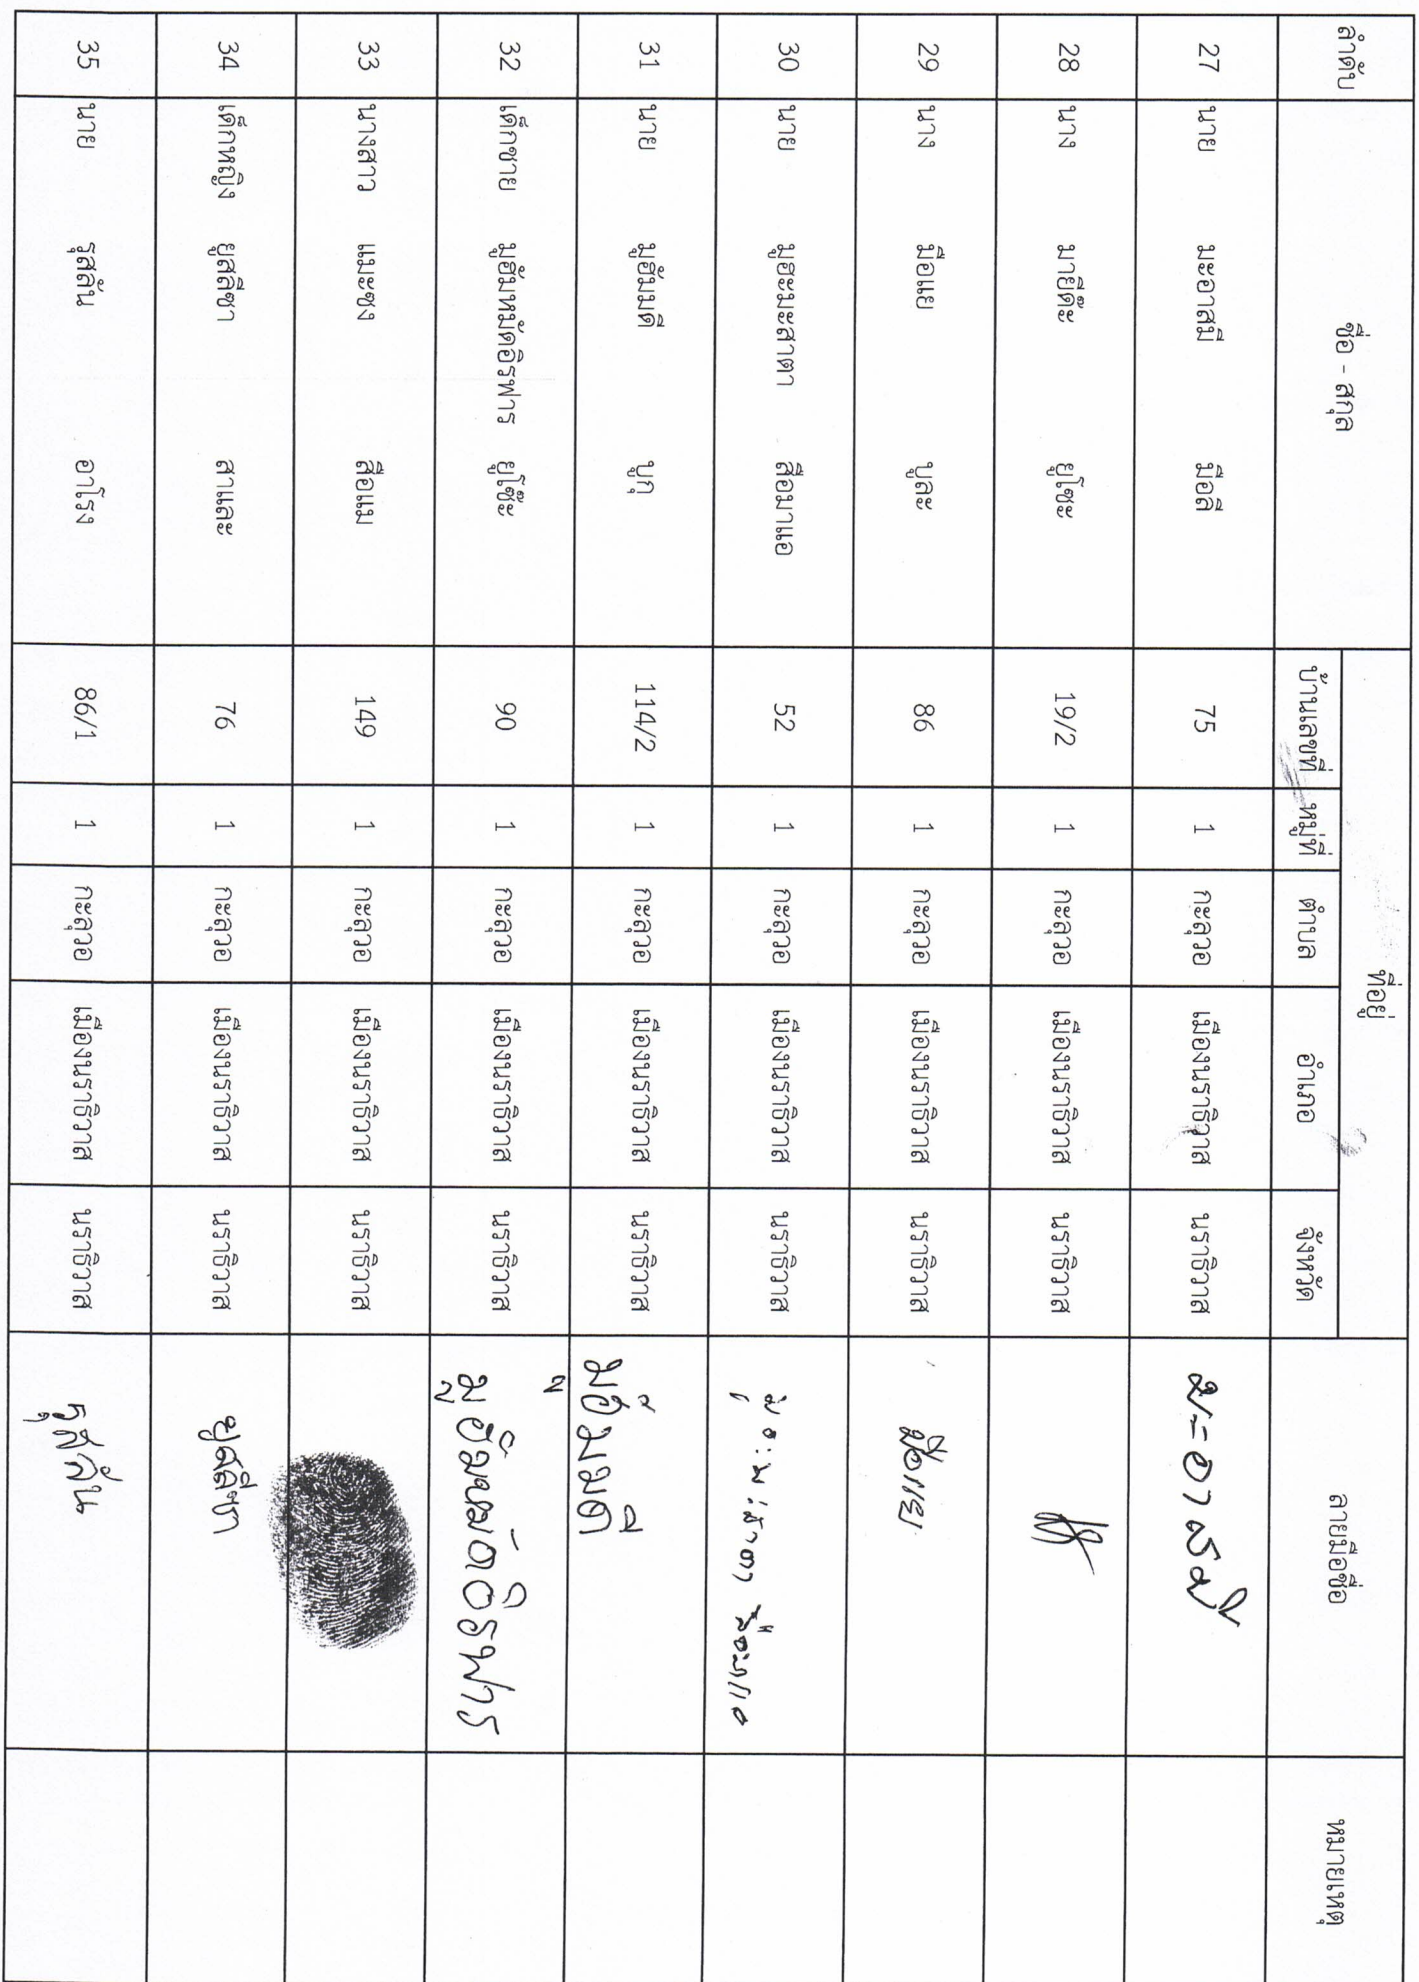 ลำดับ ชื่อ - สกุล ที่อยู่ ลายมือชื่อ หมายเหตุ
บ้านเลขที่ หมู่ที่ ตำบล อำเภอ จังหวัด
27 นาย มะอาสมี มือลี 75 1 กะลุวอ เมืองนราธิวาส นราธิวาส มะอาสมี
28 นาง มายีต๊ะ ยูโซะ 19/2 1 กะลุวอ เมืองนราธิวาส นราธิวาส
29 นาง มือแย บูละ 86 1 กะลุวอ เมืองนราธิวาส นราธิวาส มือแย
30 นาย มูฮะมะสาตา สือมาแอ 52 1 กะลุวอ เมืองนราธิวาส นราธิวาส มูฮะมะสาตา สือมาแอ
31 นาย มูฮัมมดี บูกุ 114/2 1 กะลุวอ เมืองนราธิวาส นราธิวาส
32 เด็กชาย มูฮัมหมัดอิรฟาร ยูโซ๊ะ 90 1 กะลุวอ เมืองนราธิวาส นราธิวาส มูฮัมหมัดอิรฟาร
33 นางสาว แมะซง สือแม 149 1 กะลุวอ เมืองนราธิวาส นราธิวาส
34 เด็กหญิง ยูสลีซา สาและ 76 1 กะลุวอ เมืองนราธิวาส นราธิวาส ยูสลีซา
35 นาย รุสลัน อาโรง 86/1 1 กะลุวอ เมืองนราธิวาส นราธิวาส รุสลัน